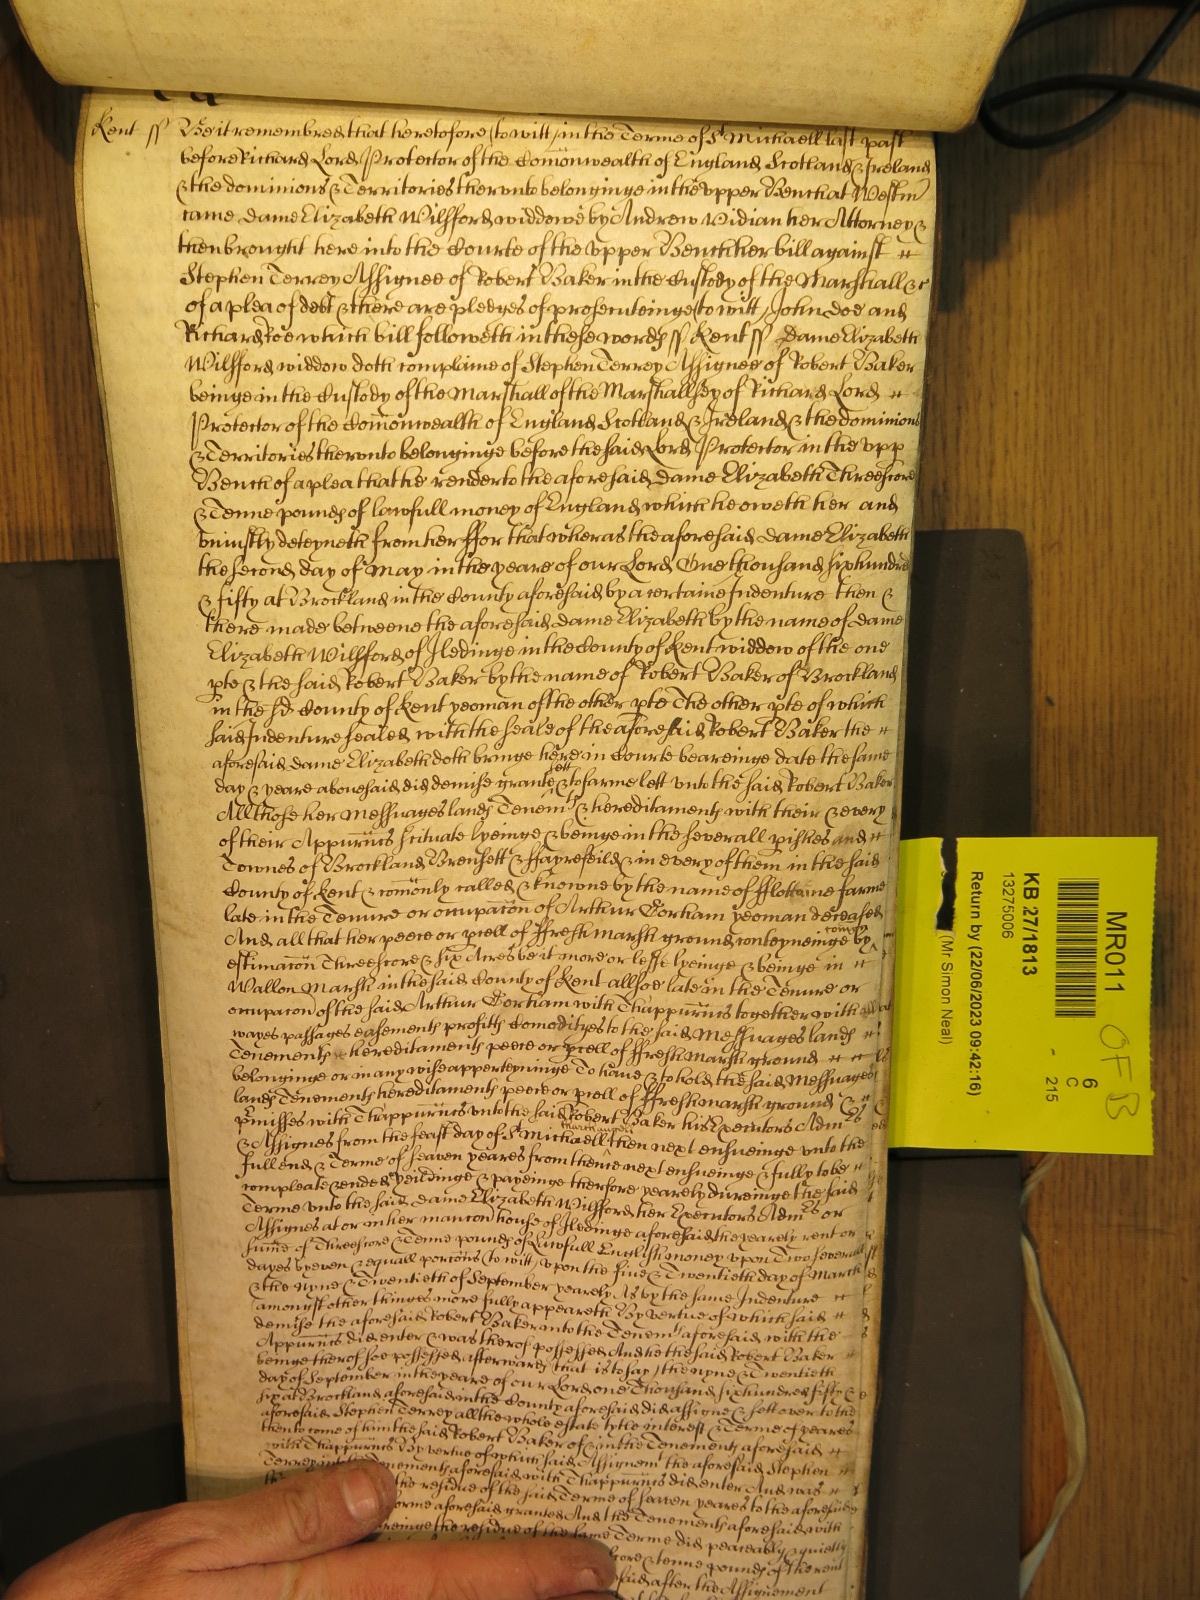 Kent ss Be it remembred that heretofore (to witt) in the Terme of St Michaell last past
before Richard Lord Protector of the Comonwealth of England Scotland & Ireland
& the dominions & Territories therunto belonginge in the upper Bench at Westm
came dame Elizabeth Willsford widdowe by Andrew Vidian her Attorney &
then brought here into the Courte of the upper Bench her bill against
Stephen Terrey Assignee of Robert Baker in the Custody of the Marshall &c
of a plea of debt & there are pledges of prosecuteinge (to witt) John Doe and
Richard Roe which bill followeth in these words ss Kent ss Dame Elizabeth
Willsford widdow doth complaine of Stephen Terrey Assignee of Robert Baker
beinge in the Custody of the Marshall of the Marshallsey of Richard Lord
Protector of the Comonwealth of England Scotland & Ireland & the dominions
& Territories therunto belonginge before the said Lord Protector in the upp
Bench of a plea that he render to the aforesaid dame Elizabeth Threescore
& Tenne pounds of lawfull money of England which he oweth her and
uniustly deteyneth from her ffor that wheras the aforesaid dame Elizabeth
the second day of May in the yeare of our Lord One thousand six hundred
& fifty at Brockland in the County aforesaid by a certaine Indenture then &
there made betweene the aforesaid dame Elizabeth by the name of dame
Elizabeth Willsford of Iledinge in the County of Kent widdow of the one
pte & the said Robert Baker by the name of Robert Baker of Brockland
in the sd County of Kent yeoman of the other pte The other pte of which
said Indenture sealed with the seale of the aforesaid Robert Baker the
aforesaid dame Elizabeth doth bringe here in Courte beareinge date the same
day & yeare abovesaid did demise grante sett & to farme lett unto the said Robert Baker
All those her Messuages lands Tenemts & hereditaments with their & every
of their Appurtinncs scituate lyeinge & beinge in the severall pishes and
Townes of Brockland Brensett & ffayrefeild & in every of them in the said
County of Kent & comonly called & knowne by the name of farme
late in the Tenure or occupacon of Arthur Dorham yeoman deceased
And all that her peece or pcell of ffresh marsh ground conteyneinge by
estimacon Threescore & six Acres be it more or lesse lyeinge & beinge in
Wallon Marsh in the said County of Kent allsoe late in the Tenure or
occupacon of the said Arthur Dorham with Thappurtinncs together with all
wayes passages easements profitts Comodityes to the said Messuages lands
Tenements hereditaments peece or pcell of ffresh marsh ground
belonginge or in any wise apperteyninge To have & to hold the said Messuages
lands Tenements hereditaments peece or pcell of ffresh marsh ground &
pmisses with Thappurtinncs unto the said Robert Baker his Executors Adm
& Assignes from the feast day of St Michaell then next ensueinge unto the
full end & Terme of seaven yeares from thence next ensueinge & fully to be
compleate & ended yeildinge & payeinge therfore yearely dureinge the said
Terme unto the said dame Elizabeth Willsford her Executors Adm or
Assignes at or in her mancon house of Iledinge aforesaid the yearely rent or
sume of Threescore & Tenne pounds of Lawfull English money upon Two severall
dayes by even & equall porcons (to witt) upon the five & Twentieth day of March
& the nyne & Twentieth of September yearely As by the same Indenture
amongst other thinges more fully appeareth By vertue of which said
demise the aforesaid Robert Baker into the Tenemts aforesaid with the
Appurtinncs did enter & was therof possessed And he the said Robert Baker
beinge therof soe possessed afterwards that is to say the nyne & Twentieth
day of September in the yeare of our Lord one Thousand six hundred fifty &
six at Brockland aforesaid in the County aforesaid did assigne & sett over to the
aforesaid Stephen Terrey all the whole estate tytle interest & Terme of yeares
then to come of him the said Robert Baker of & in the Tenements aforesaid
with Thappurtinncs By vertue of which said Assignemt the aforesaid Stephen
Terrey into the Tenements aforesaid with Thappurtinncs did enter And was
the residue of the said Terme of seaven yeares to the aforesaid
forme aforesaid granted And the Tenements aforesaid with
the residue of the same Terme did peaceably & quietly
& tenne pounds of the rent
said after the Assignement
MR011
KB 27/1813
13275006
(Mr Simon Neal)
Return by (22/06/2023 09:42:16)
6
C
215
OF B